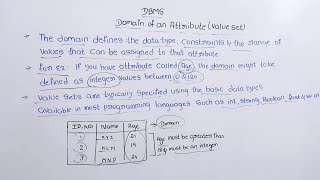 DBMS
Domain of an Attribute (Value set)
→ The domain defines the data type, Constraints & the range of
Values that can be assigned to that attribute
→ For Ex: If you have attribute called Age, the domain might be
defined as integer values between 0 & 120
→ Value sets are typically specified using the basic data types
available in most programming languages such as int, string, Boolean, float
ID.NO Name Age → Domain
1 XYZ 21
2 19
3 MNP 24
Age must be greater than
must be an integer